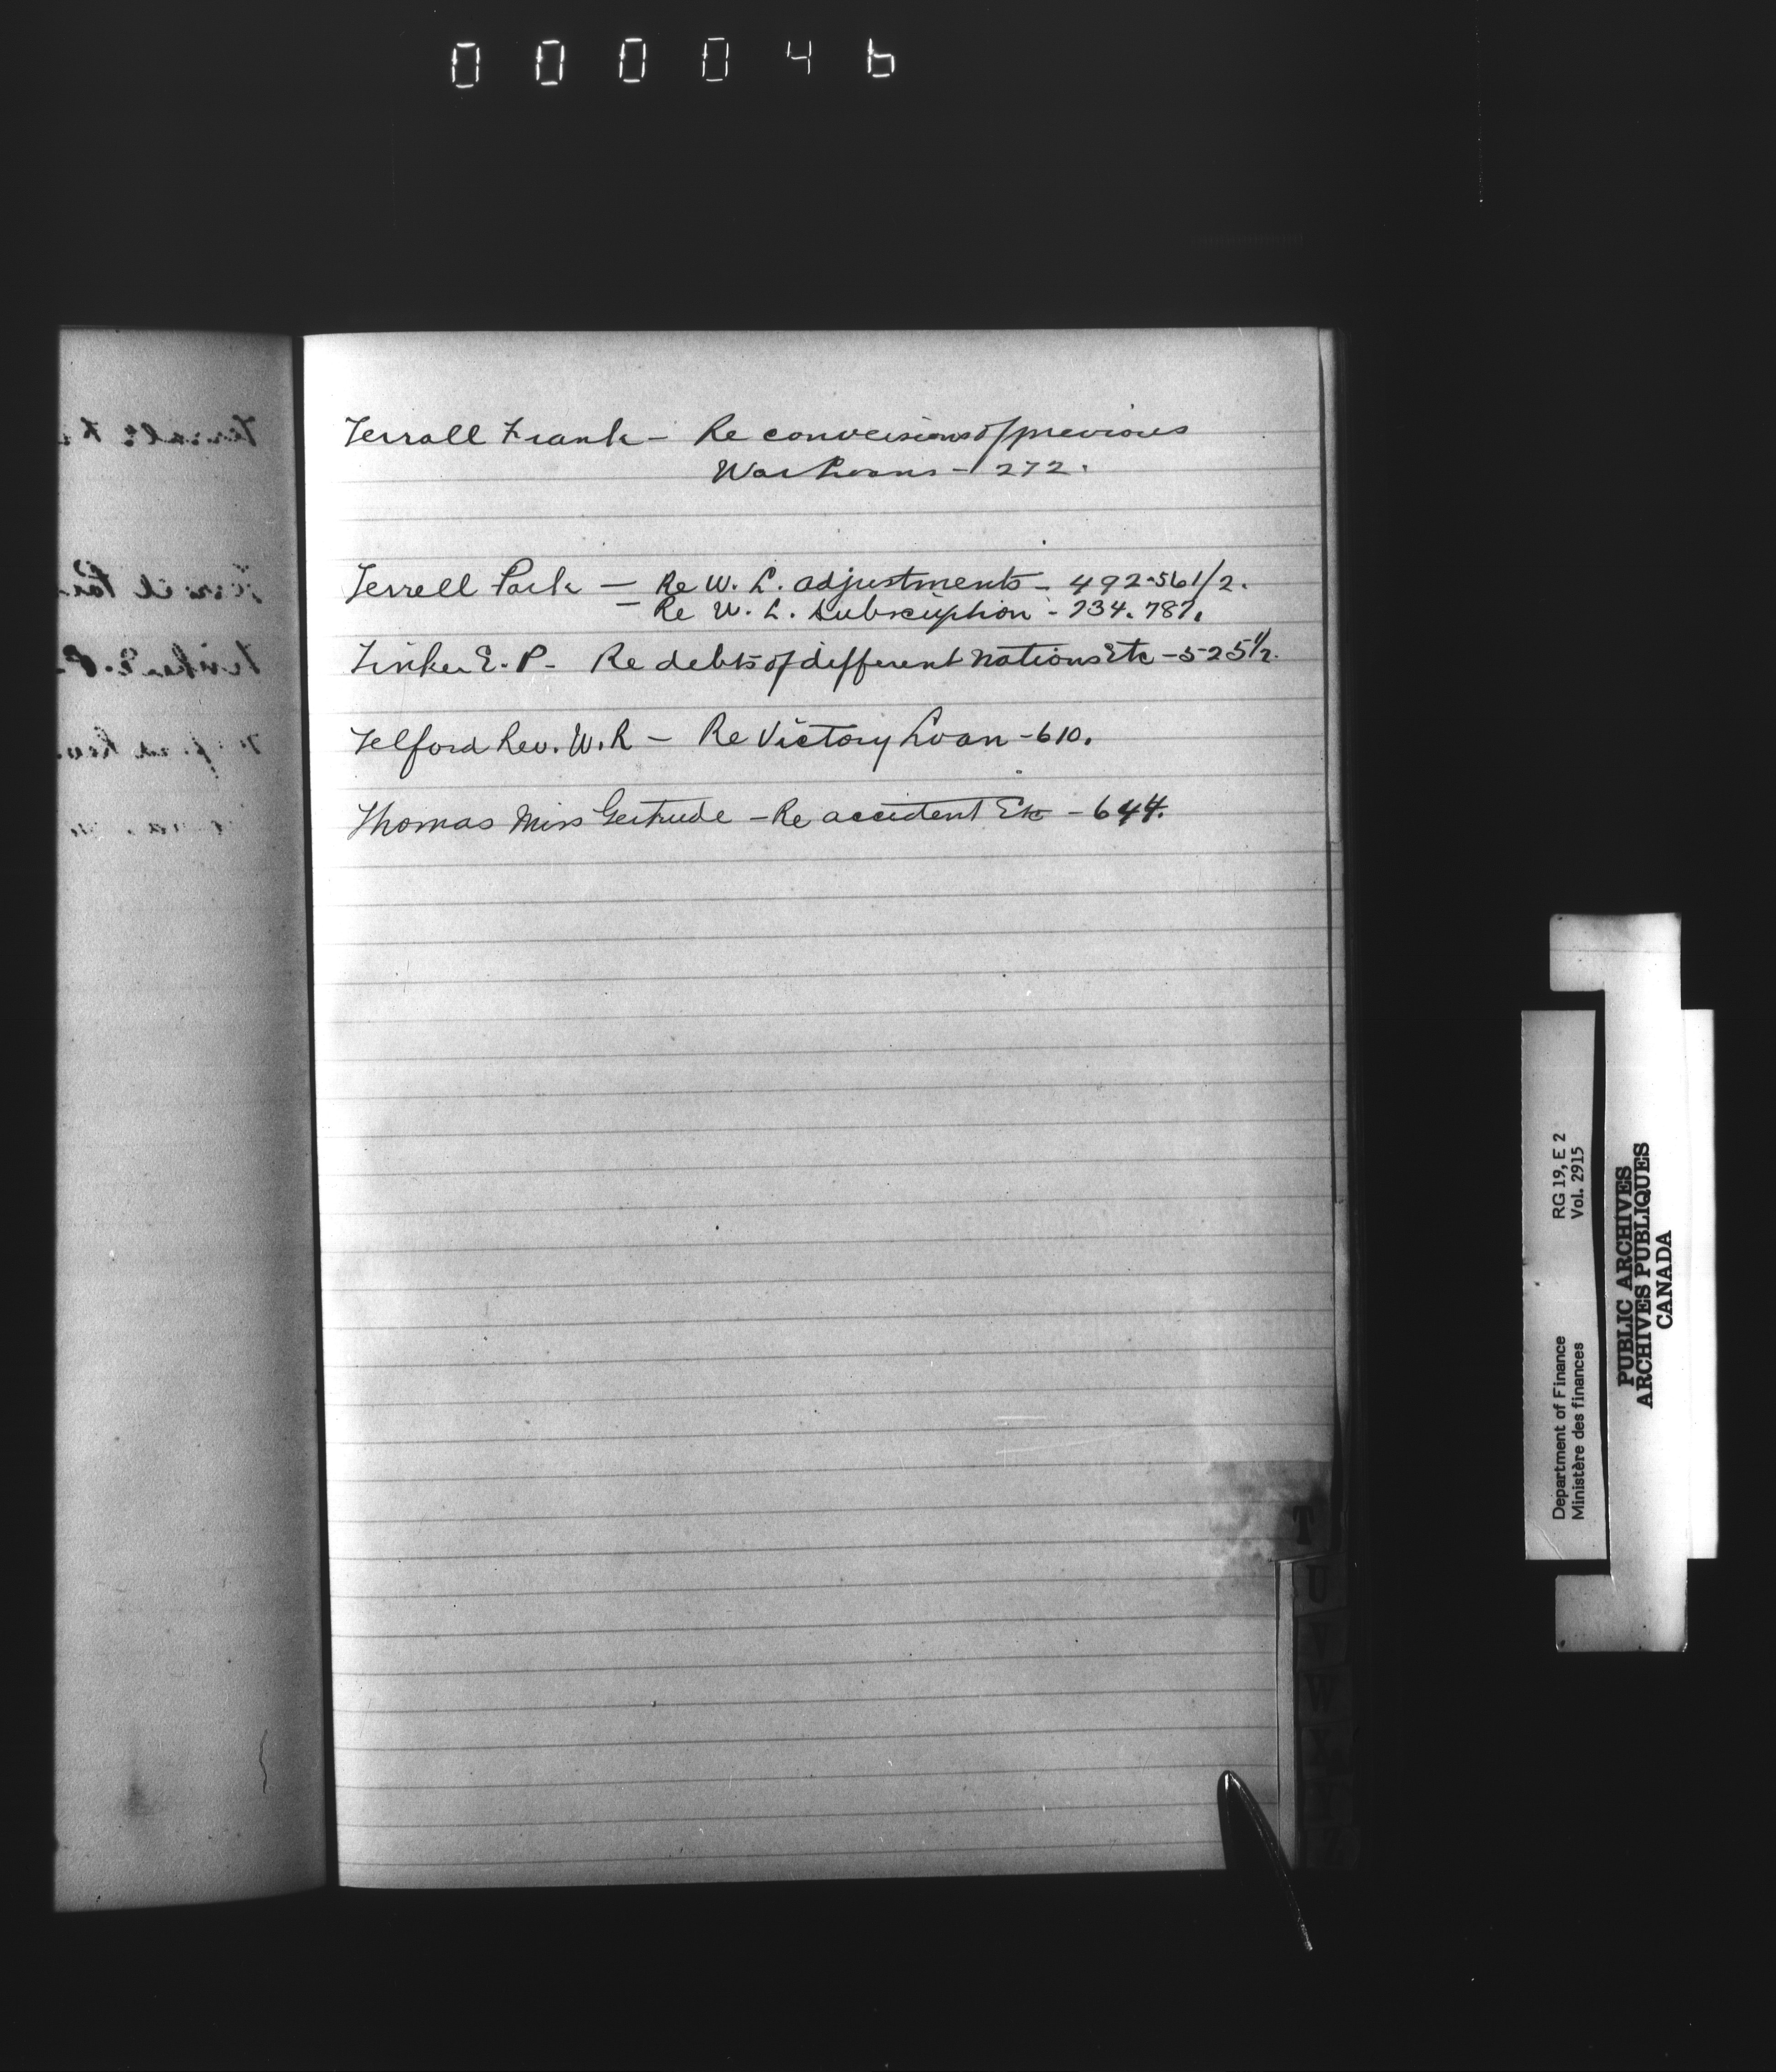 000046
Terrall Frank - Re conversions of previous
War Loans - 272.
Terrell Park - Re W. L. adjustments - 492-561/2.
- Re W. L. Subscription - 734. 787.
Tinker E. P. - Re debts of different nations Etc - 525 1/2.
Telford Rev. W. R - Re Victory Loan - 610.
Thomas Miss Gertrude - Re accident Etc - 644.
T
U
V
W
X
Y
Z
Department of Finance RG 19, E 2
Ministère des finances Vol. 2915
PUBLIC ARCHIVES
ARCHIVES PUBLIQUES
CANADA